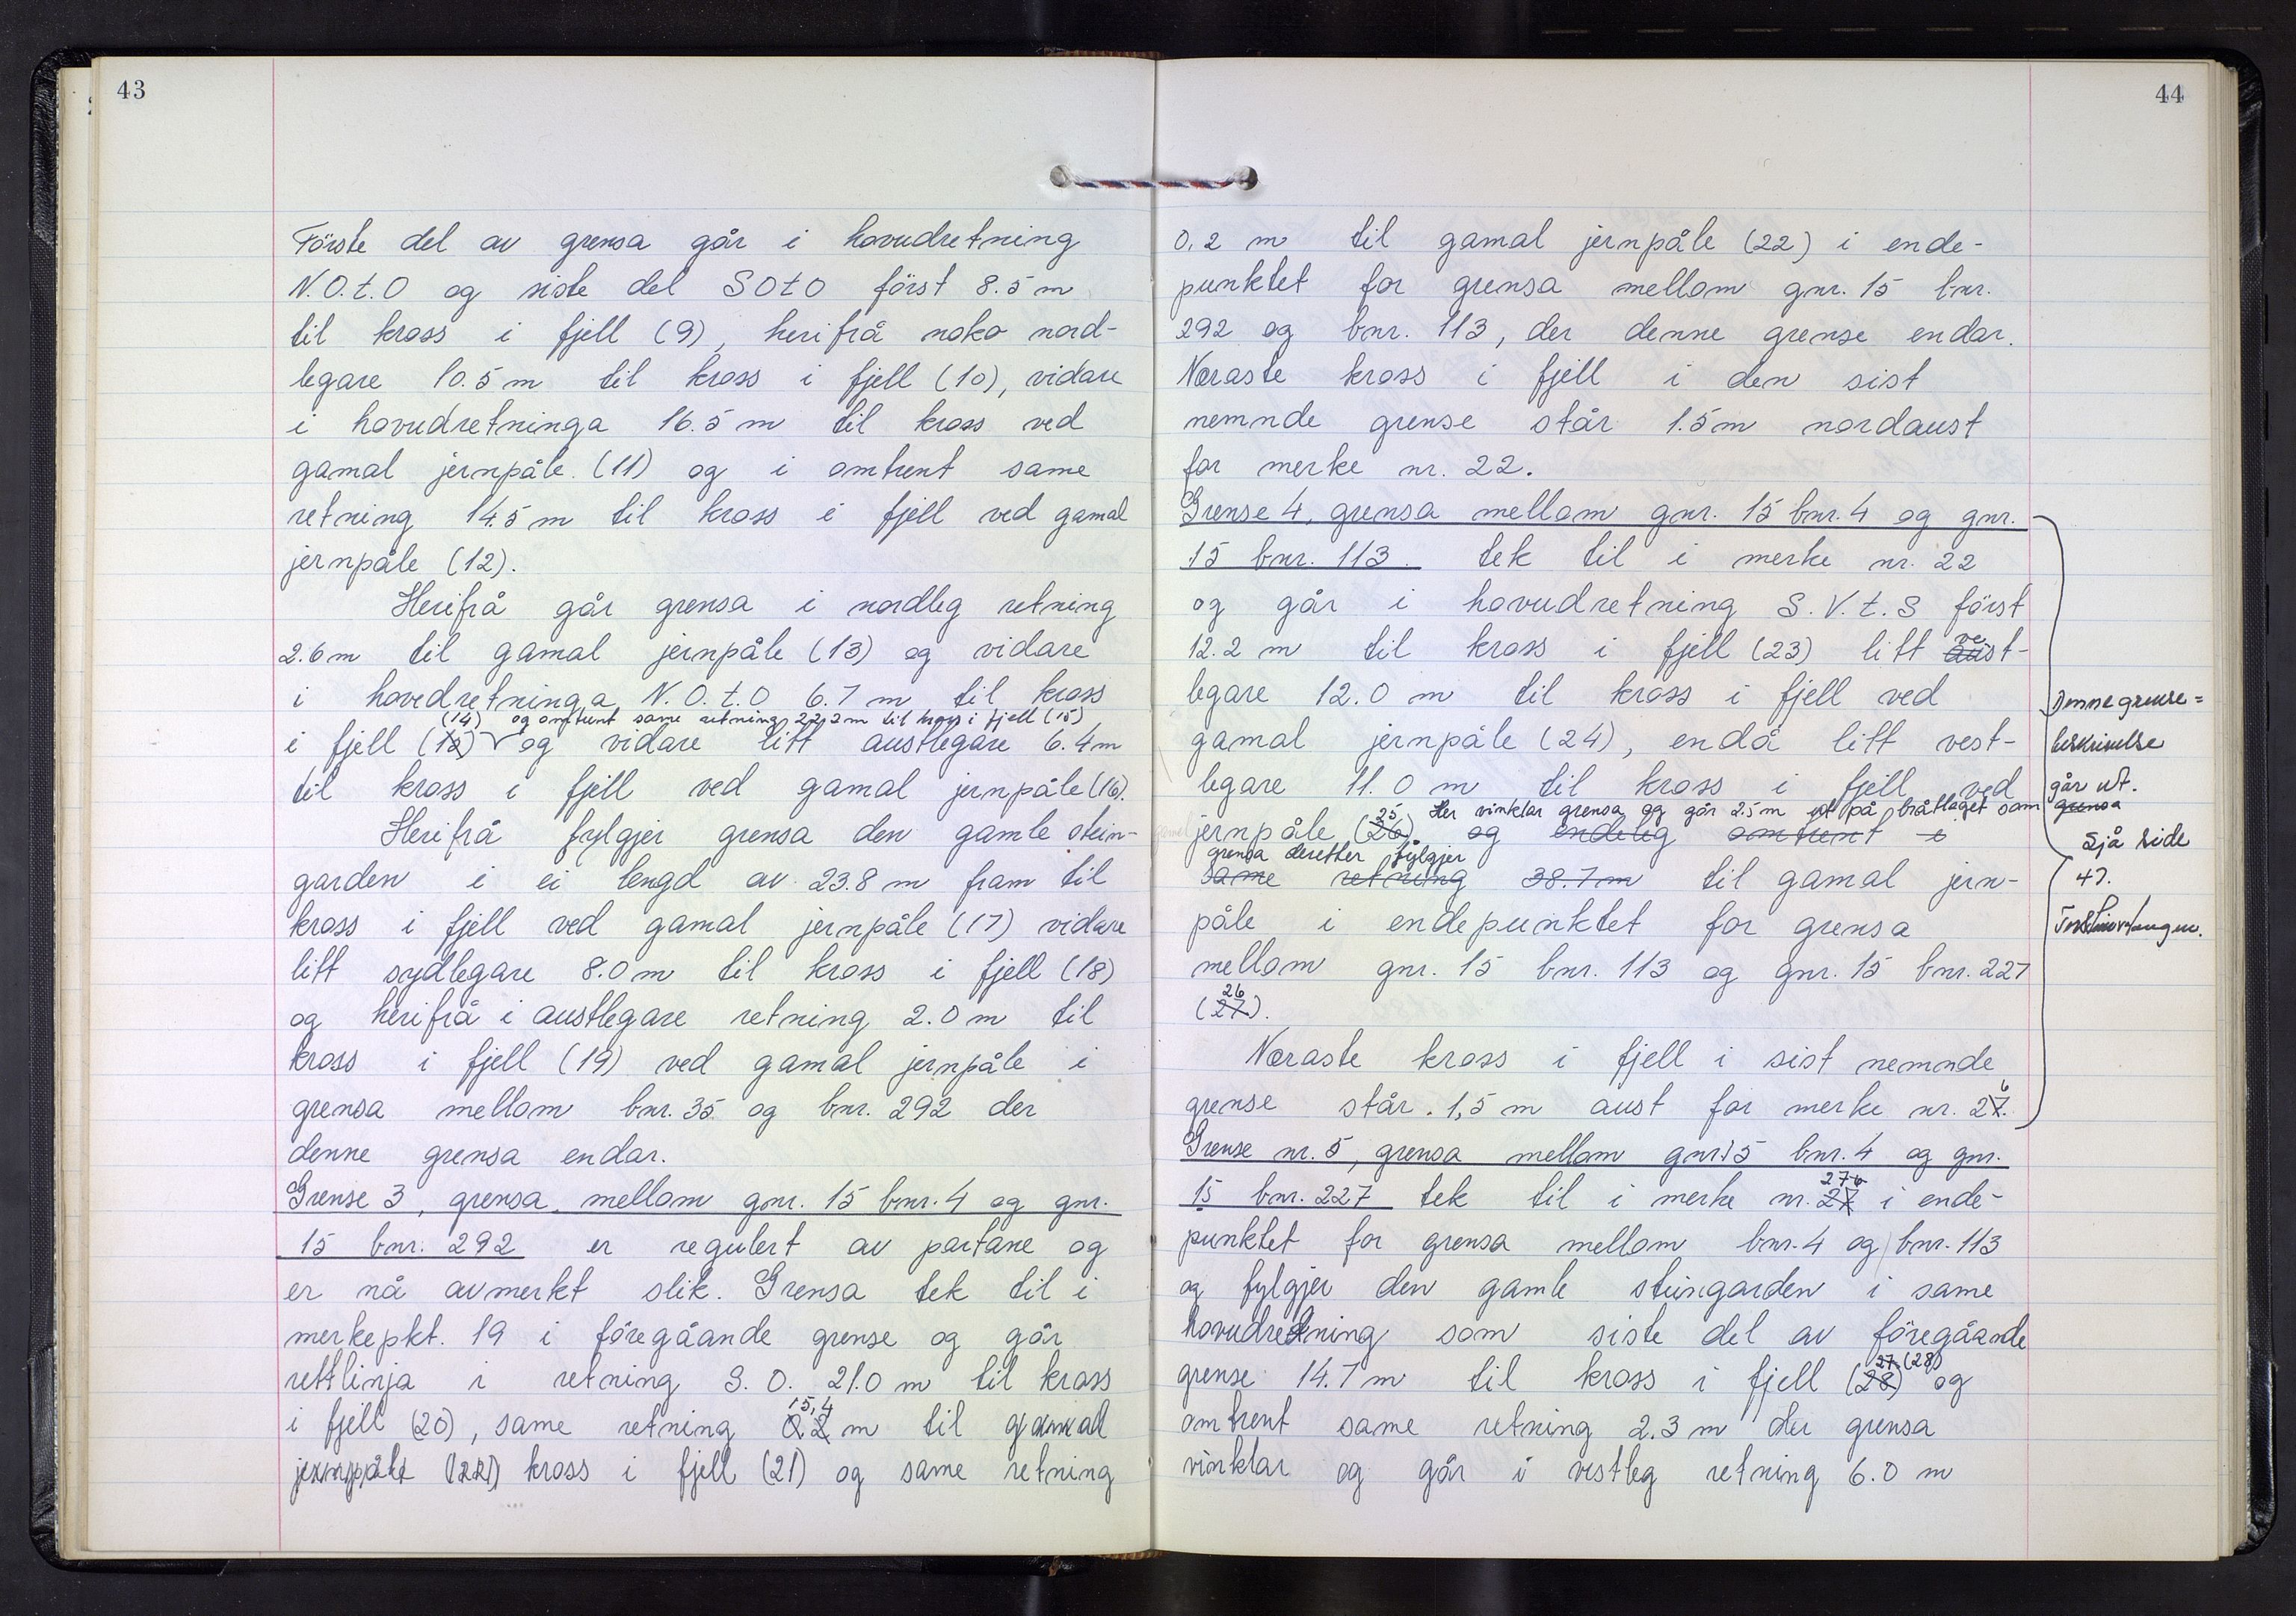 43
Förste del av grensa går i hovudretning
N.O.t.O og siste del SOtO först 8.5 m
til kross i fjell (9), herifrå noko nord-
legare 10.5 m til kross i fjell (10), vidare
i hovudretninga 16.5 m til kross ved
gamal jernpåle (11) og i omtrent same
retning 14.5 m til kross i fjell ved gamal
jernpåle (12).
Herifrå går grensa i nordleg retning
2.6 m til gamal jernpåle (13) og vidare
i hovedretninga N.O.t.O 6.7 m til kross
(14) og omtrent same retning 22,2 m til kross i fjell (15)
i fjell og vidare litt austlegare 6.4 m
til kross i fjell ved gamal jernpåle (16).
Herifrå fylgjer grensa den gamle stein-
garden i ei lengd av 23.8 m fram til
kross i fjell ved gamal jernpåle (17) vidare
litt sydlegare 8.0 m til kross i fjell (18)
og herifrå i austlegare retning 2.0 m til
kross i fjell (19) ved gamal jernpåle i
grensa mellom bnr. 35 og bnr. 292 der
denne grensa endar.
Grense 3, grensa mellom gnr. 15 bnr. 4 og gnr.
15 bnr. 292 er regulert av partane og
er nå avmerkt slik. Grensa tek til i
merkepkt. 19 i föregåande grense og går
rettlinja i retning S.O. 21.0 m til kross
15,4
i fjell (20), same retning 0.2 m til gamal
jernpåle (22) kross i fjell (21) og same retning
44
0,2 m til gamal jernpåle (22) i ende-
punktet for grensa mellom gnr. 15 bnr.
292 og bnr. 113, der denne grense endar.
Næraste kross i fjell i den sist
nemnde grense står 1.5 m nordaust
for merke nr. 22.
Grense 4, grensa mellom gnr. 15 bnr. 4 og gnr.
15 bnr. 113. tek til i merke nr. 22
og går i hovudretning S.V.t.S först
ve
12.2 m til kross i fjell (23) litt aust-
legare 12.0 m til kross i fjell ved
gamal jernpåle (24), endå litt vest-
legare 11.0 m til kross i fjell ved
25 Her vinklar grensa og går 2.5 m ut på bråtlaget som grensa
jernpåle (26) og endeleg omtrent i
grensa deretter fylgjer
same retning 38.7 m til gamal jern-
påle i endepunktet for grensa
mellom gnr. 15 bnr. 113 og gnr. 15 bnr. 227
26
(27).
Næraste kross i fjell i sist nemnde
6
grense står 1,5 m aust for merke nr. 27.
Grense nr. 5, grensa mellom gnr 15 bnr. 4 og gnr.
276
15 bnr. 227 tek til i merke nr. 27 i ende-
punktet for grensa mellom bnr. 4 og bnr. 113
og fylgjer den gamle steingarden i same
hovudretning som siste del av föregåande
27 (28)
grense 14.7 m til kross i fjell (28) og
omtrent same retning 2.3 m der grensa
vinklar og går i vestleg retning 6.0 m
Denne grense=
beskrivelse
går ut.
Sjå side
47.